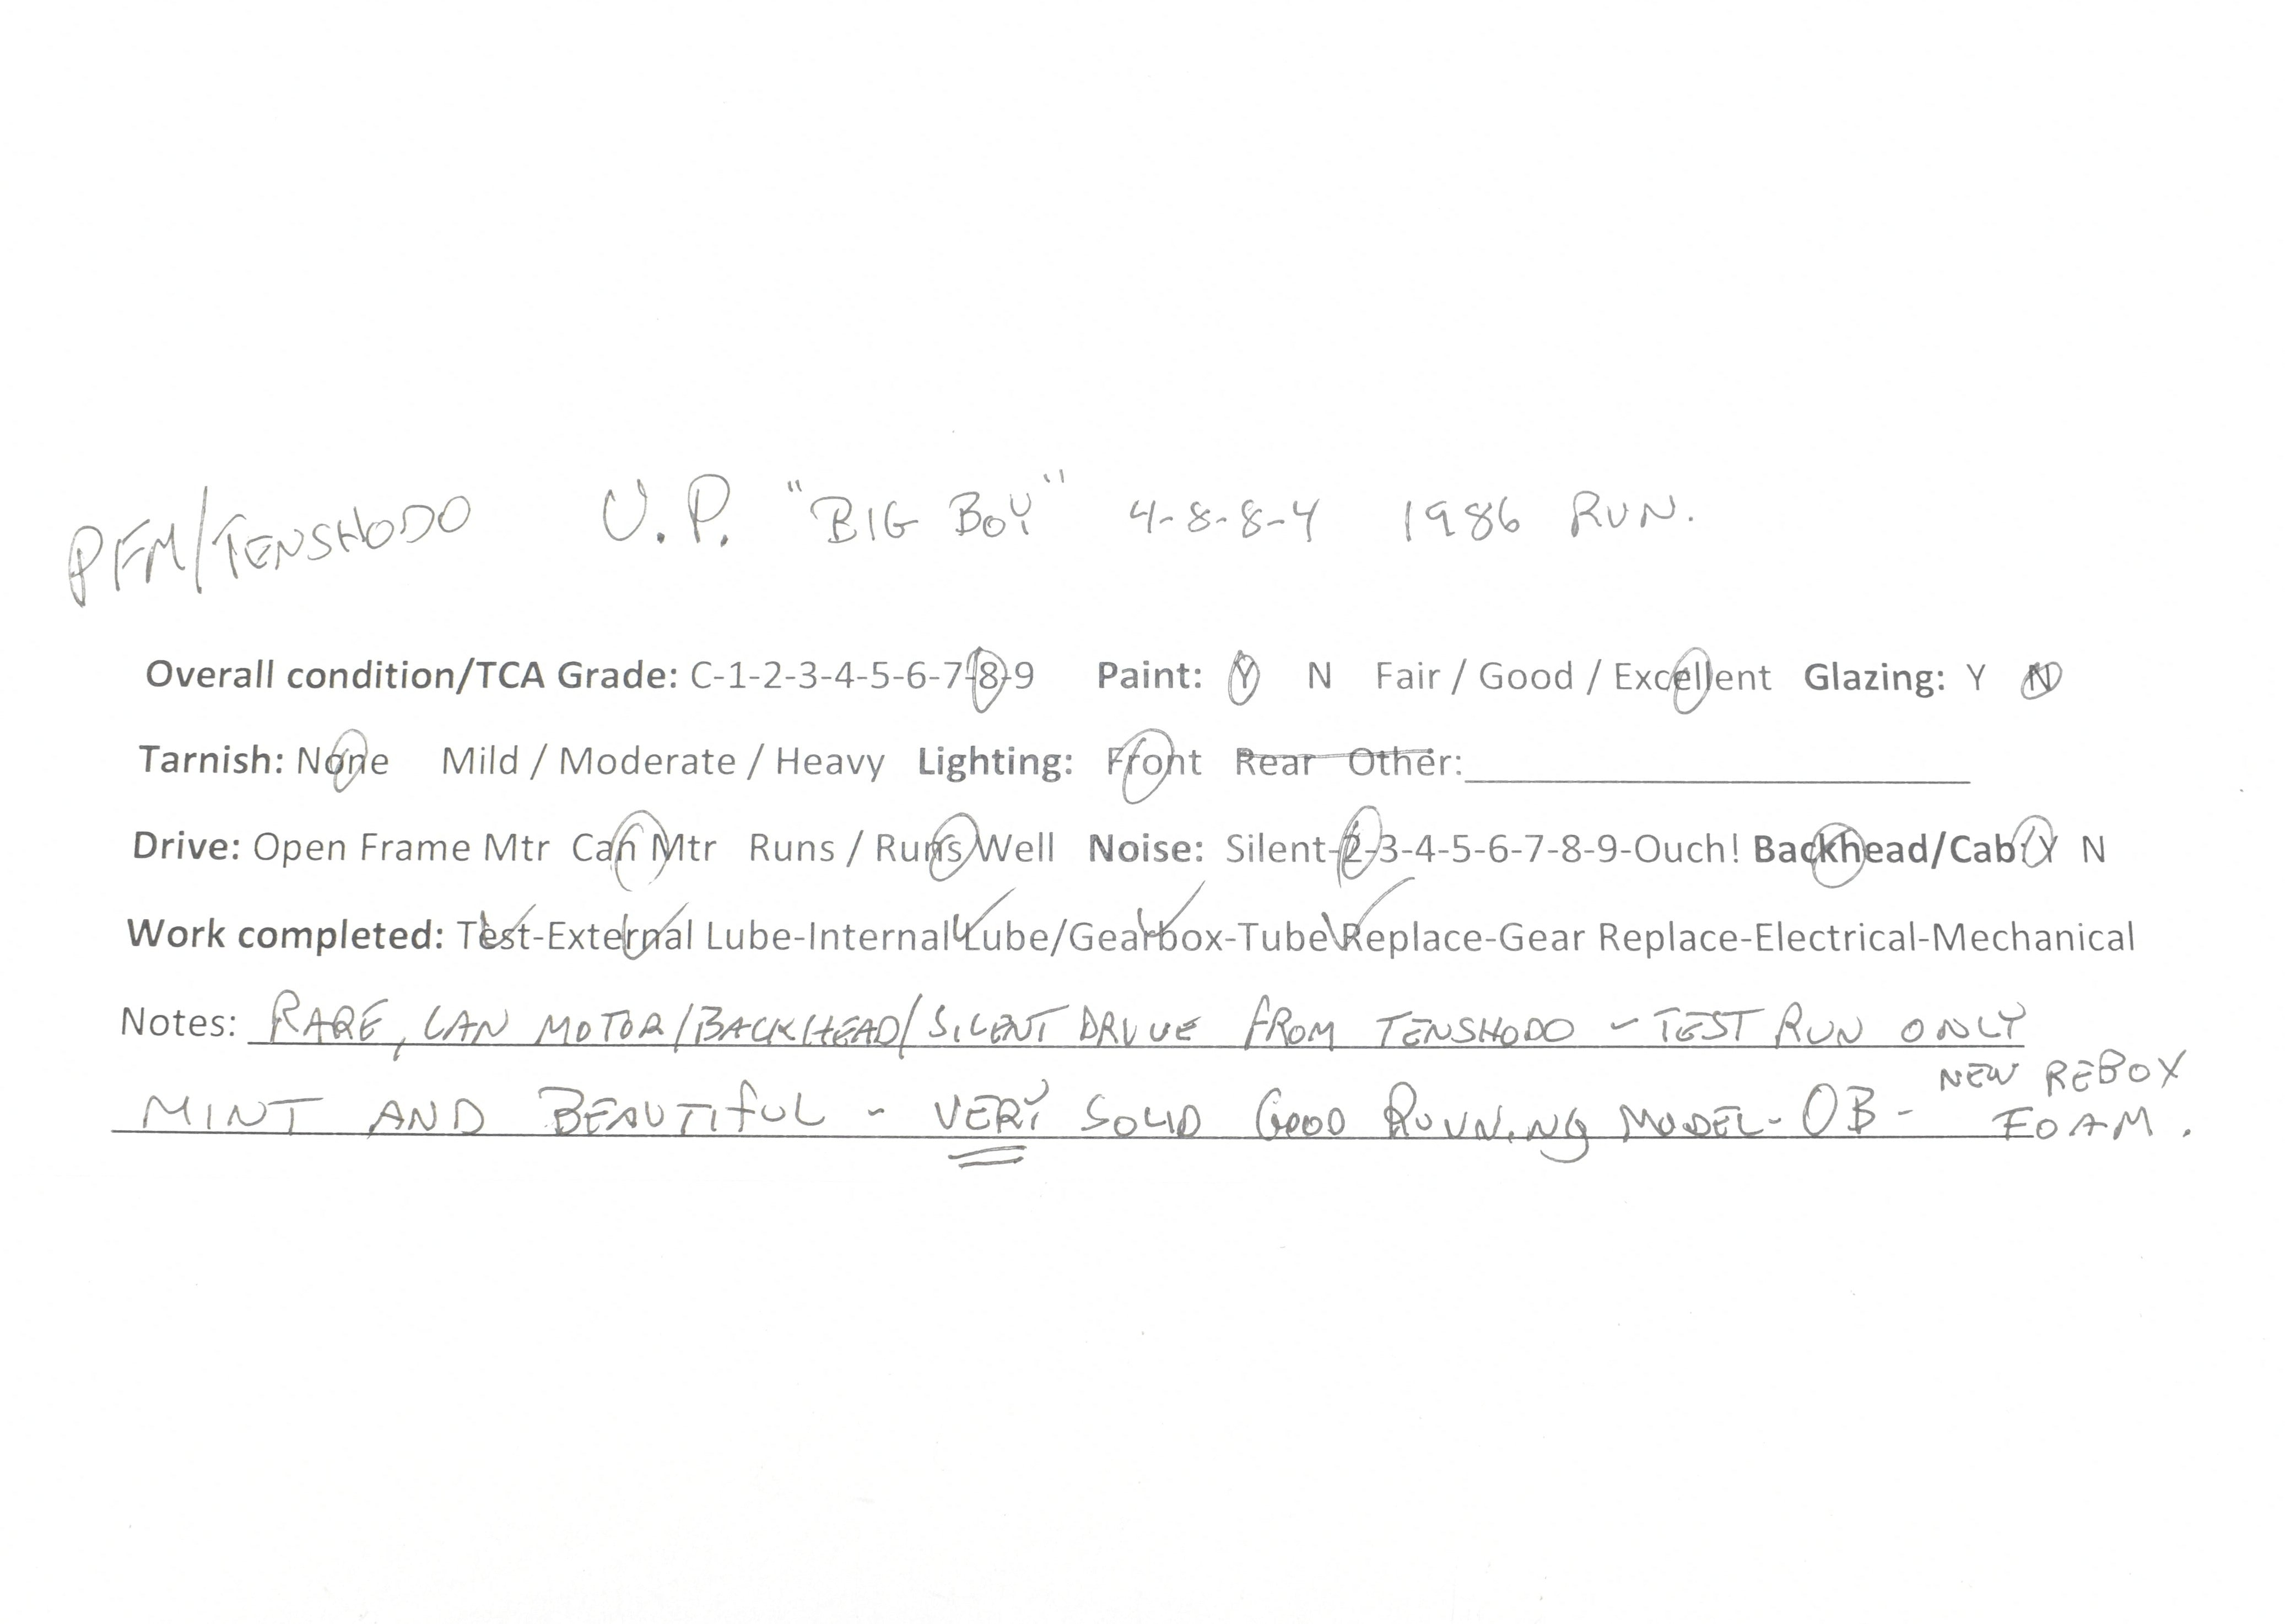 PFM/TENSHODO U.P. "BIG BOY" 4-8-8-4 1986 RUN.
Overall condition/TCA Grade: C-1-2-3-4-5-6-7-8-9 Paint: Y N Fair / Good / Excellent Glazing: Y N
Tarnish: None Mild / Moderate / Heavy Lighting: Front Rear Other:
Drive: Open Frame Mtr Can Mtr Runs / Runs Well Noise: Silent-2-3-4-5-6-7-8-9-Ouch! Backhead/Cab: Y N
Work completed: Test-External Lube-Internal Lube/Gearbox-Tube Replace-Gear Replace-Electrical-Mechanical
Notes: RARE, CAN MOTOR/BACKHEAD/SILENT DRIVE FROM TENSHODO - TEST RUN ONLY
MINT AND BEAUTIFUL - VERY SOLID GOOD RUNNING MODEL - OB - NEW REBOX FOAM.